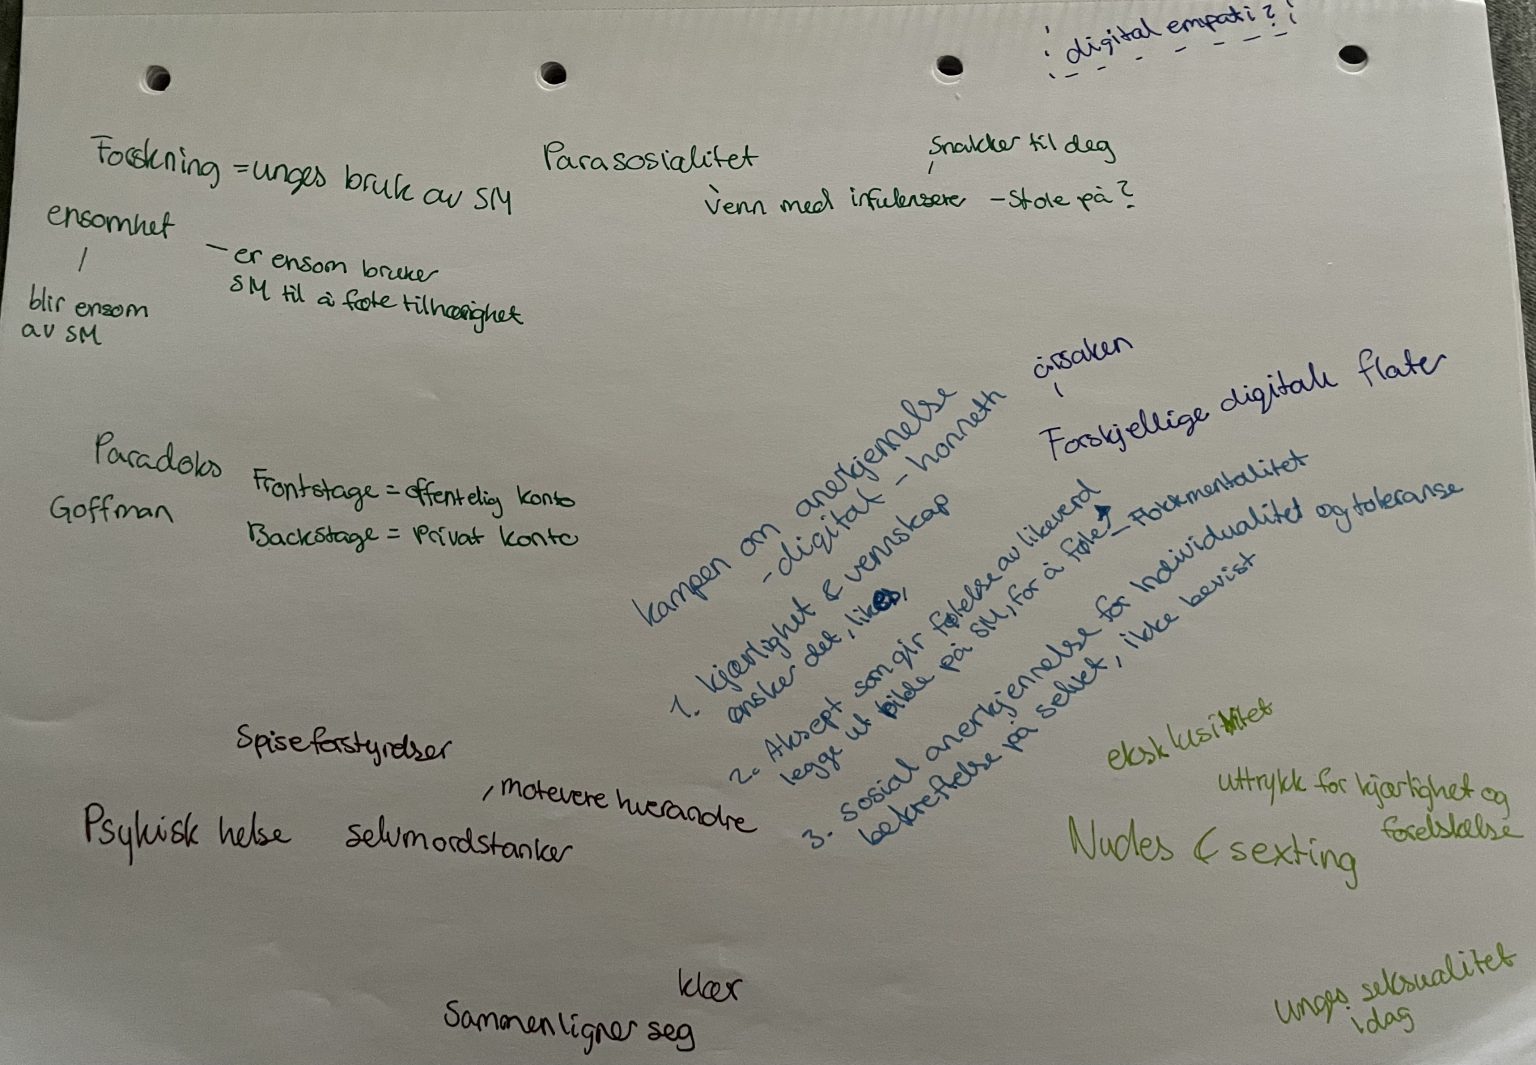 digital empati?
Forskning = unges bruk av SM
ensomhet
blir ensom
av SM
- er ensom bruker
SM til å føle tilhørighet
Parasosialitet
Snakker til deg
Venn med infulensere - Stole på?
Paradoks
Goffman
Frontstage = offentelig konto
Backstage = Privat konto
årsaken
Forskjellige digitale flater
kampen om anerkjennelse
- digital - honneth
1. kjærlighet & vennskap
ønsker det, likes,
2. Aksept som gir følelse av likeverd
legge ut bilde på SM, for å føle - Flokkmentalitet
3. sosial anerkjennelse for individualitet og toleranse
bekreftelse på selvet, ikke bevist
Spiseforstyrelser
, motevere hverandre
Psykisk helse selvmordstanker
klær
Sammenligner seg
eksklusivitet
uttrykk for kjærlighet og
forelskelse
Nudes & sexting
unges seksualitet
i dag